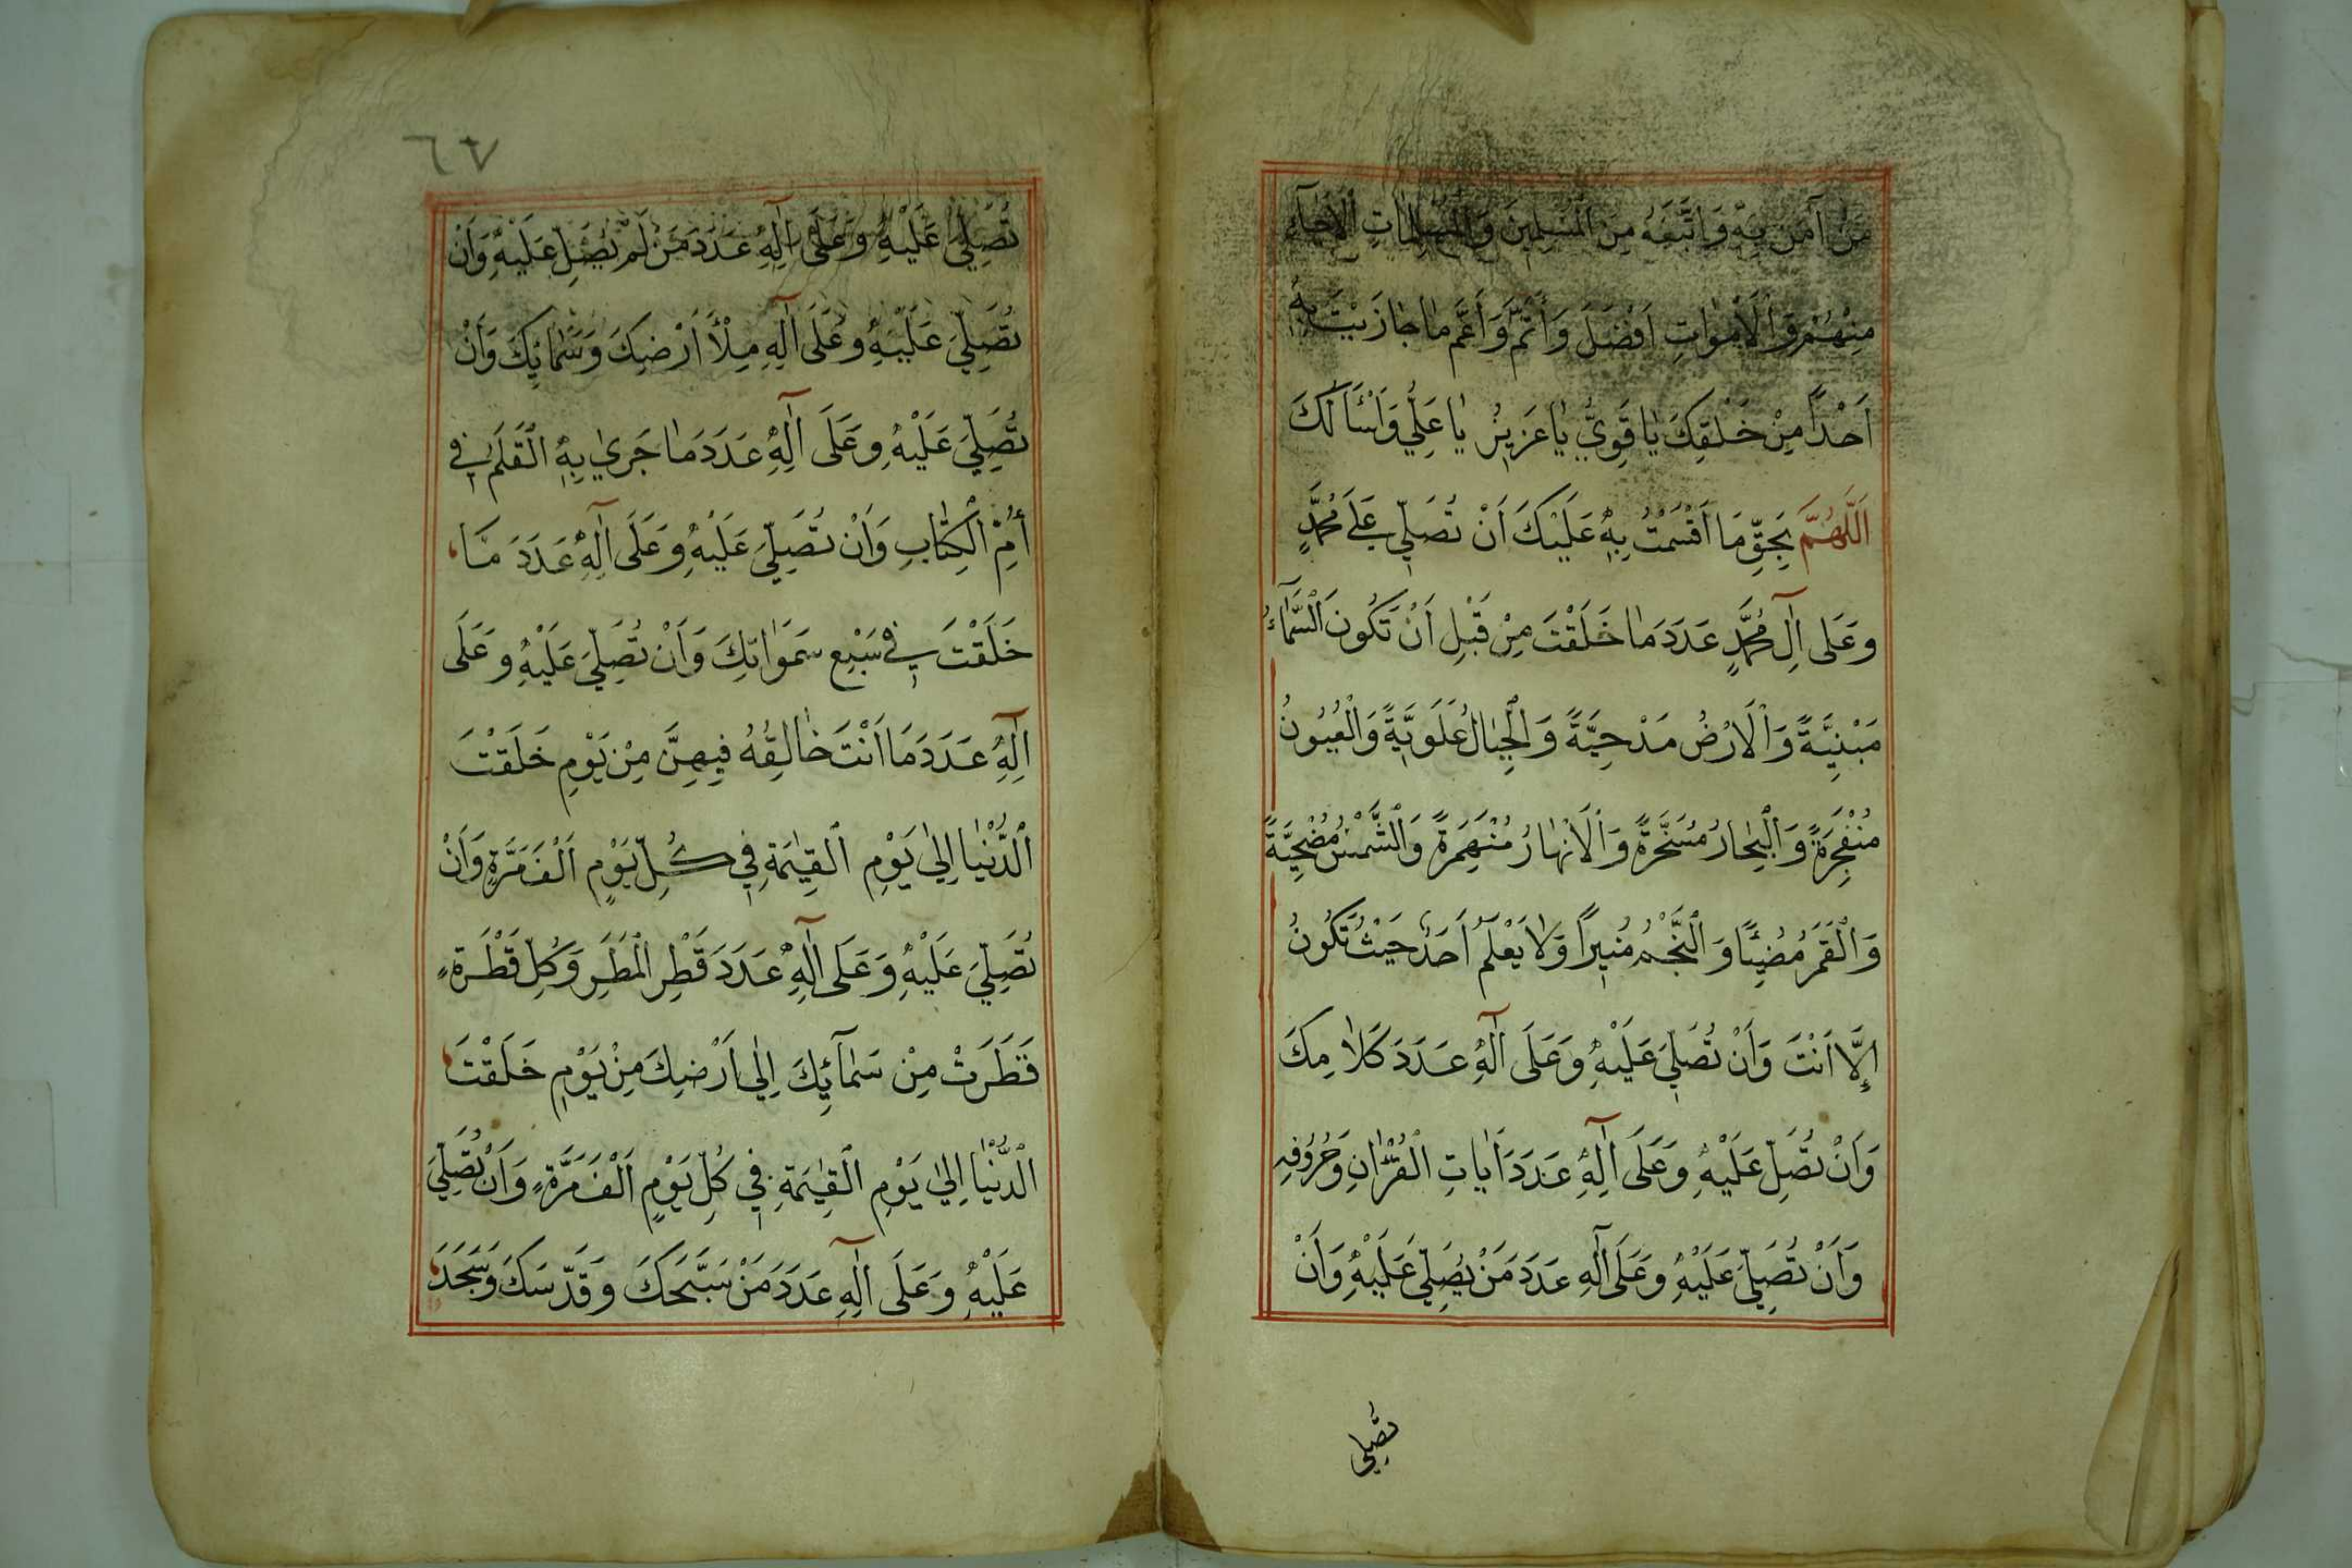 مَنْ آمَنَ بِهِ وَاتَّبَعَهُ مِنَ الْمُسْلِمِينَ وَالْمُسْلِمَاتِ الْأَحْيَآءِ
مِنْهُمْ وَالْأَمْوَاتِ اَفْضَلَ وَاَتَمَّ وَاَعَمَّ مَا جَازَيْتَ بِهِ
اَحَدًا مِنْ خَلْقِكَ يَا قَوِيُّ يَا عَزِيزُ يَا عَلِيُّ وَاَسْاَلُكَ
اَللّٰهُمَّ بِحَقِّ مَا اَقْسَمْتُ بِهِ عَلَيْكَ اَنْ تُصَلِّيَ عَلَى مُحَمَّدٍ
وَعَلَى اٰلِ مُحَمَّدٍ عَدَدَ مَا خَلَقْتَ مِنْ قَبْلِ اَنْ تَكُونَ السَّمَآءُ
مَبْنِيَّةً وَالْاَرْضُ مَدْحِيَّةً وَالْجِبَالُ عُلَوِيَّةً وَالْعُيُونُ
مُنْفَجِرَةً وَالْبِحَارُ مُسَخَّرَةً وَالْاَنْهَارُ مُنْهَمِرَةً وَالشَّمْسُ مُضْحِيَّةً
وَالْقَمَرُ مُضِيْئًا وَالنَّجْمُ مُنِيرًا وَلَا يَعْلَمُ اَحَدٌ حَيْثُ تَكُونُ
اِلَّا اَنْتَ وَاَنْ تُصَلِّيَ عَلَيْهِ وَعَلَى اٰلِهِ عَدَدَ كَلَامِكَ
وَاَنْ تُصَلِّ عَلَيْهِ وَعَلَى اٰلِهِ عَدَدَ اٰيَاتِ الْقُرْاٰنِ وَحُرُوفِهِ
وَاَنْ تُصَلِّيَ عَلَيْهِ وَعَلَى اٰلِهِ عَدَدَ مَنْ يُصَلِّي عَلَيْهِ وَاَنْ
تُصَلِّي
٦٧
تُصَلِّيَ عَلَيْهِ وَعَلَى اٰلِهِ عَدَدَ مَنْ لَمْ يُصَلِّ عَلَيْهِ وَاَنْ
تُصَلِّيَ عَلَيْهِ وَعَلَى اٰلِهِ مِلْأَ اَرْضِكَ وَسَمَائِكَ وَاَنْ
تُصَلِّيَ عَلَيْهِ وَعَلَى اٰلِهِ عَدَدَ مَا جَرَى بِهِ الْقَلَمُ فِي
اُمِّ الْكِتَابِ وَاَنْ تُصَلِّيَ عَلَيْهِ وَعَلَى اٰلِهِ عَدَدَ مَا
خَلَقْتَ فِي سَبْعِ سَمَوَاتِكَ وَاَنْ تُصَلِّيَ عَلَيْهِ وَعَلَى
اٰلِهِ عَدَدَ مَا اَنْتَ خَالِقُهُ فِيهِنَّ مِنْ يَوْمِ خَلَقْتَ
الدُّنْيَا اِلَى يَوْمِ الْقِيٰمَةِ فِي كُلِّ يَوْمٍ اَلْفَ مَرَّةٍ وَاَنْ
تُصَلِّيَ عَلَيْهِ وَعَلَى اٰلِهِ عَدَدَ قَطْرِ الْمَطَرِ وَكُلِّ قَطْرَةٍ
قَطَرَتْ مِنْ سَمَآئِكَ اِلَى اَرْضِكَ مِنْ يَوْمِ خَلَقْتَ
الدُّنْيَا اِلَى يَوْمِ الْقِيٰمَةِ فِي كُلِّ يَوْمٍ اَلْفَ مَرَّةٍ وَاَنْ تُصَلِّيَ
عَلَيْهِ وَعَلَى اٰلِهِ عَدَدَ مَنْ سَبَّحَكَ وَقَدَّسَكَ وَسَجَدَ